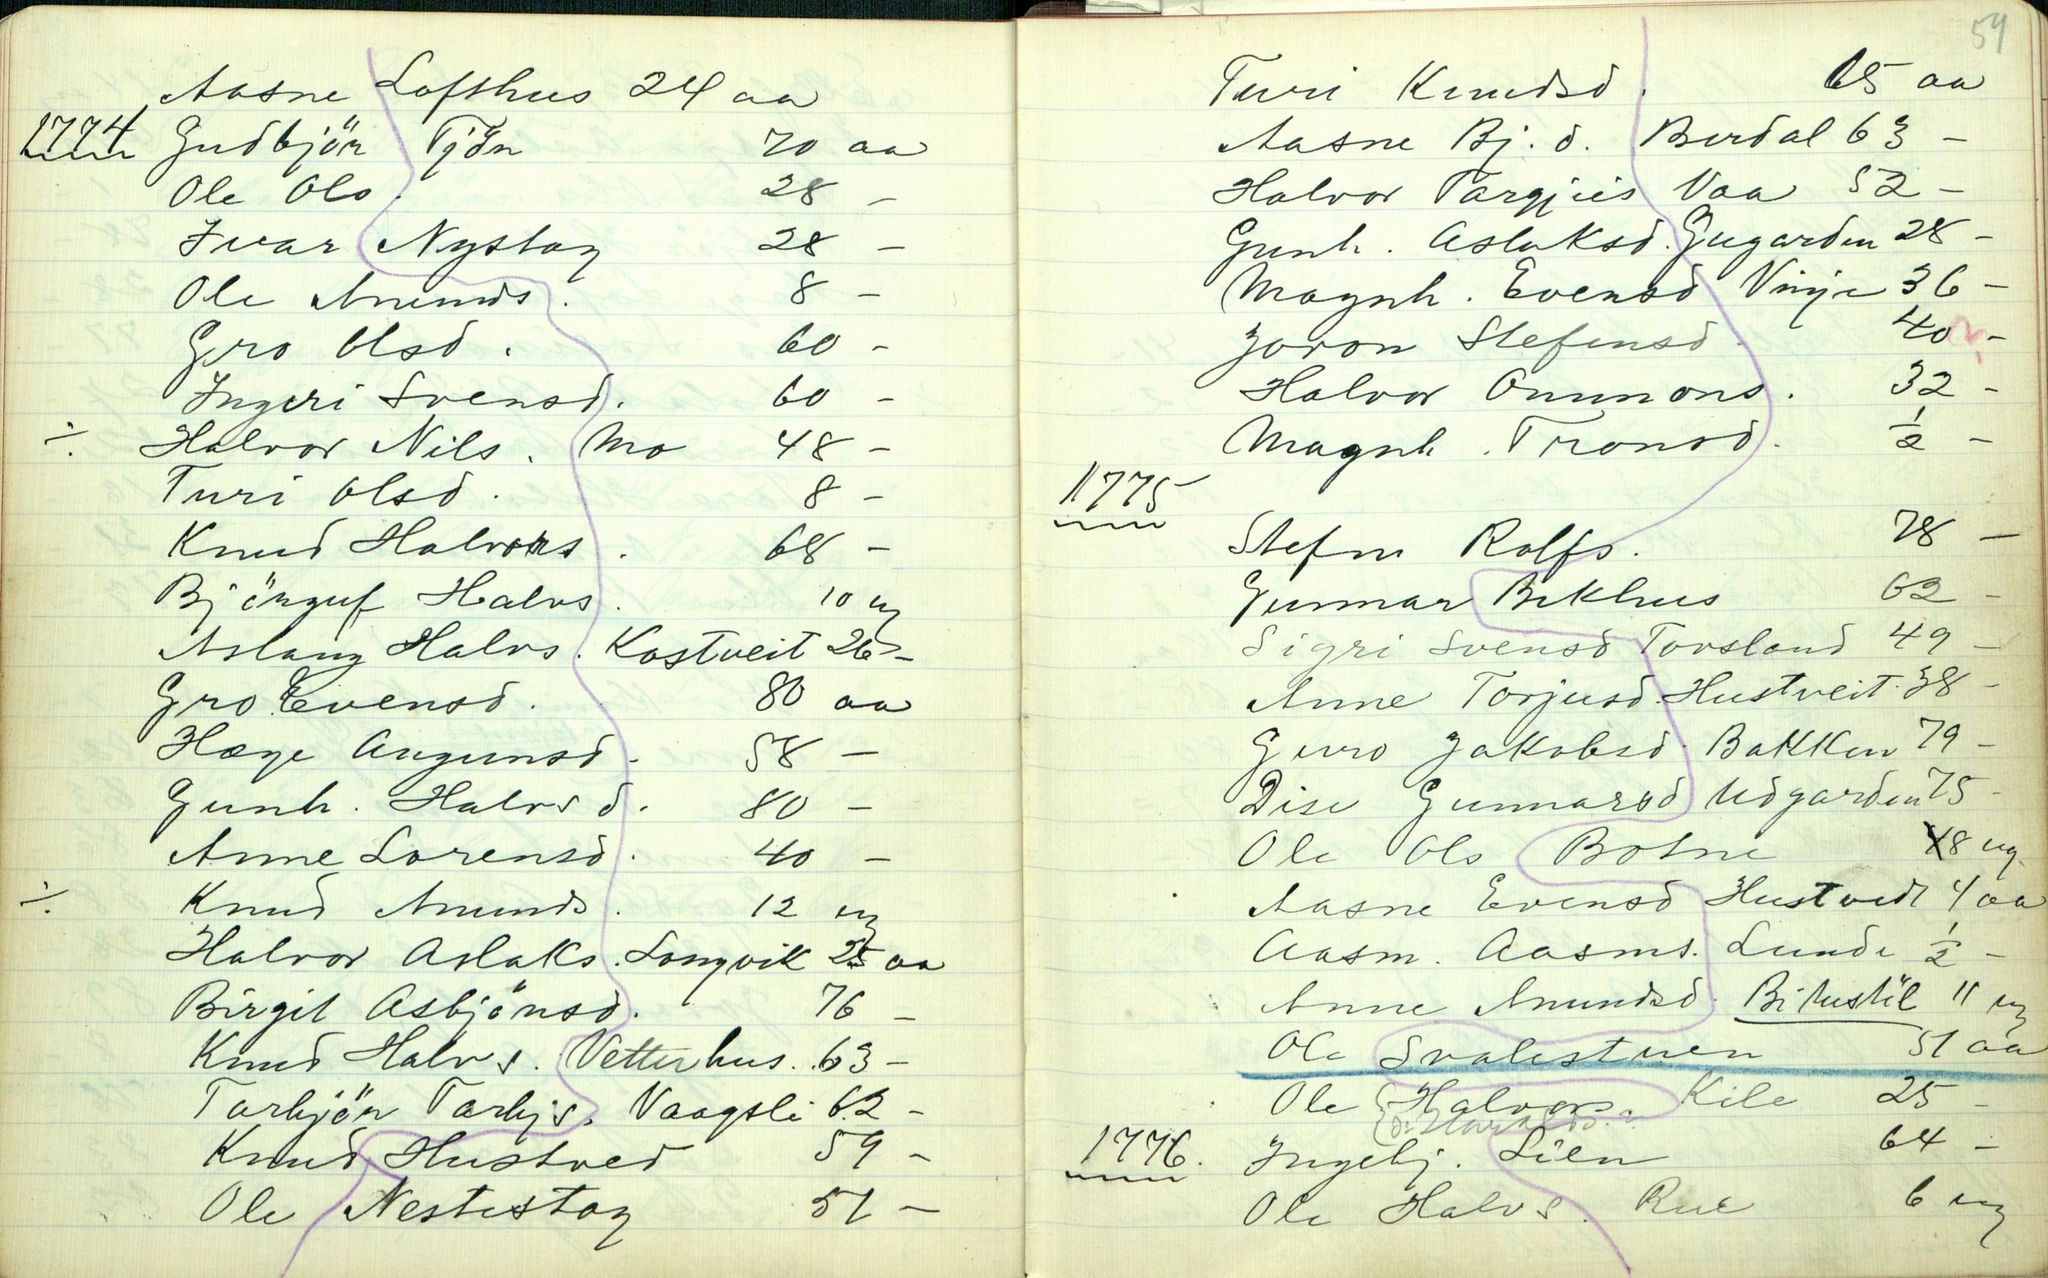 Aasne Lofthus 24 aa
1774 Gudbjör Tjön 70 aa
Ole Ols. 28 –
Ivar Nystog 28 –
Ole Anunds. 8 –
Gro Olsd. 60 –
Ingeri Svensd. 60 –
÷ Halvor Nils. Mo 48 –
Turi Olsd. 8 –
Knud Halvors. 68 –
Björguf Halvs. 10 ug
Aslaug Halvs. Kostveit 26 –
Gro Evensd. 80 aa
Hæge Augunsd. 58 –
Gunh. Halvsd. 80 –
Anne Lorensd. 40 –
÷ Knud Anunds. 12 ug
Halvor Aslaks. Longvik 25 aa
Birgit Asbjönsd. 76 –
Knud Halvs. Vetterhus. 63 –
Tarbjör Tarbjs. Vaagsli 62 –
Knud Hustved 59 –
Ole Nestestog 51 –
54
Turi Knudsd. 65 aa
Aasne Bj.d. Berdal 63 –
Halvor Targjeis Vaa 52 –
Gunh. Aslaksd. Gugarden 28 –
Magnh. Evensd Vinje 36 –
Joron Stefensd. 40 – ?
Halvor Ommons. 32 –
Magnh. Tronsd. ½ –
1775
Stefen Rolfs. 78 –
Gunnar Bekhus 62 –
Sigri Svensd Torsland 49 –
Anne Torjusd. Hustveit. 38 –
Guro Jakobsd. Bakken 79 –
Dise Gunnarsd Udgarden 75 –
Ole Ols Botne 48 ug.
Aasne Evensd Hustvedt 4 aa
Aasm. Aasms. Lunde ½ –
Anne Anundsd. Bitustöl 11 ug
Ole Svalestuen 51 aa
Ole Halvors. Kile 25 –
1776. Ingebj. Lien 64 –
Ole Halvs. Rue 6 ug